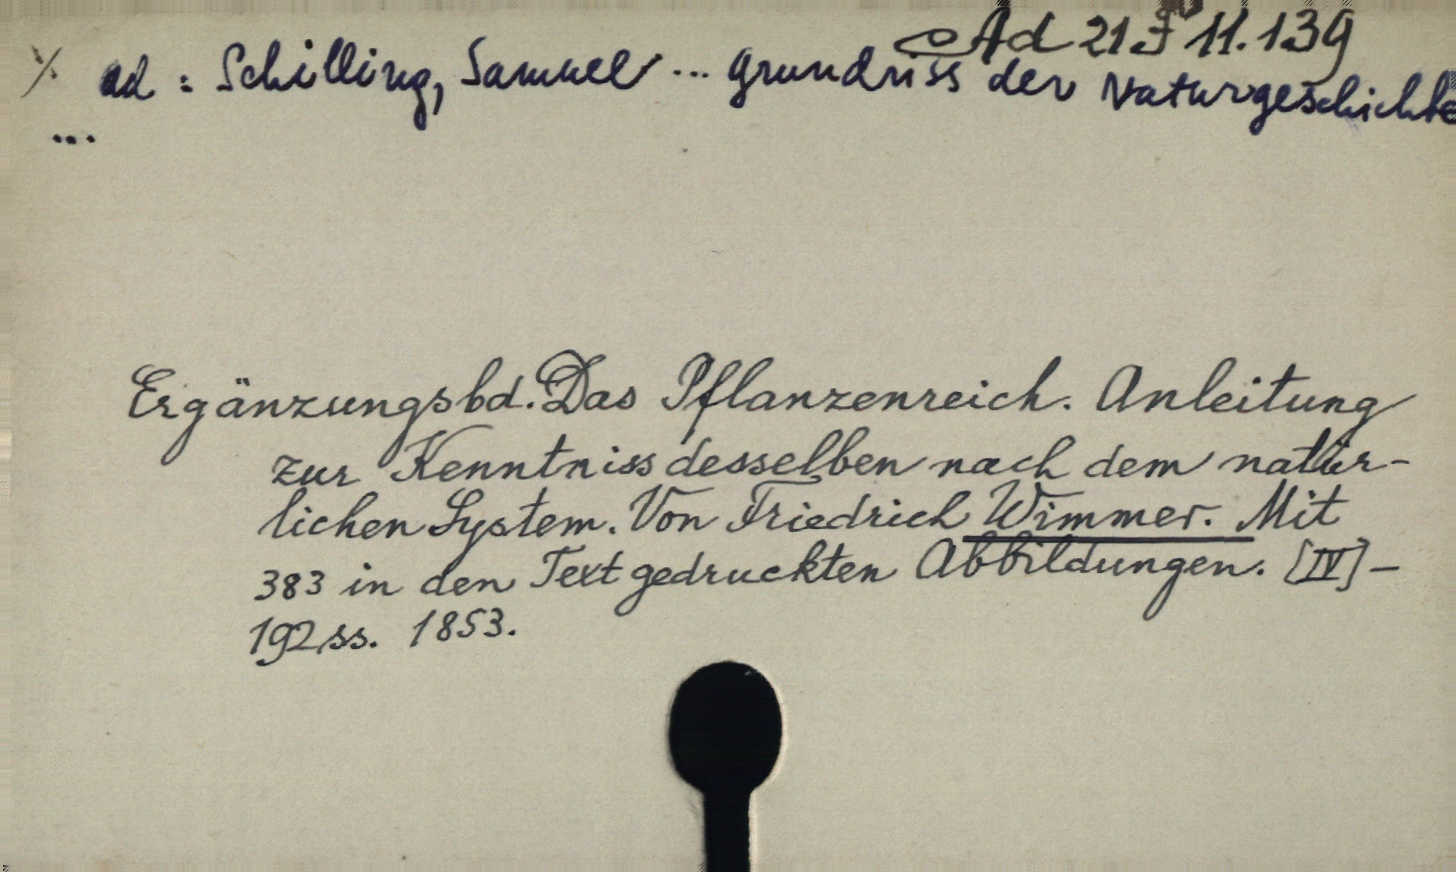 Ad 21 J 11.139
ad : Schilling, Samuel ... Grundriss der Naturgeschichte
...
Ergänzungsbd. Das Pflanzenreich. Anleitung
zur Kenntniss desselben nach dem natür-
lichen System. Von Friedrich Wimmer. Mit
383 in den Text gedruckten Abbildungen. [IV] -
192 ss. 1853.